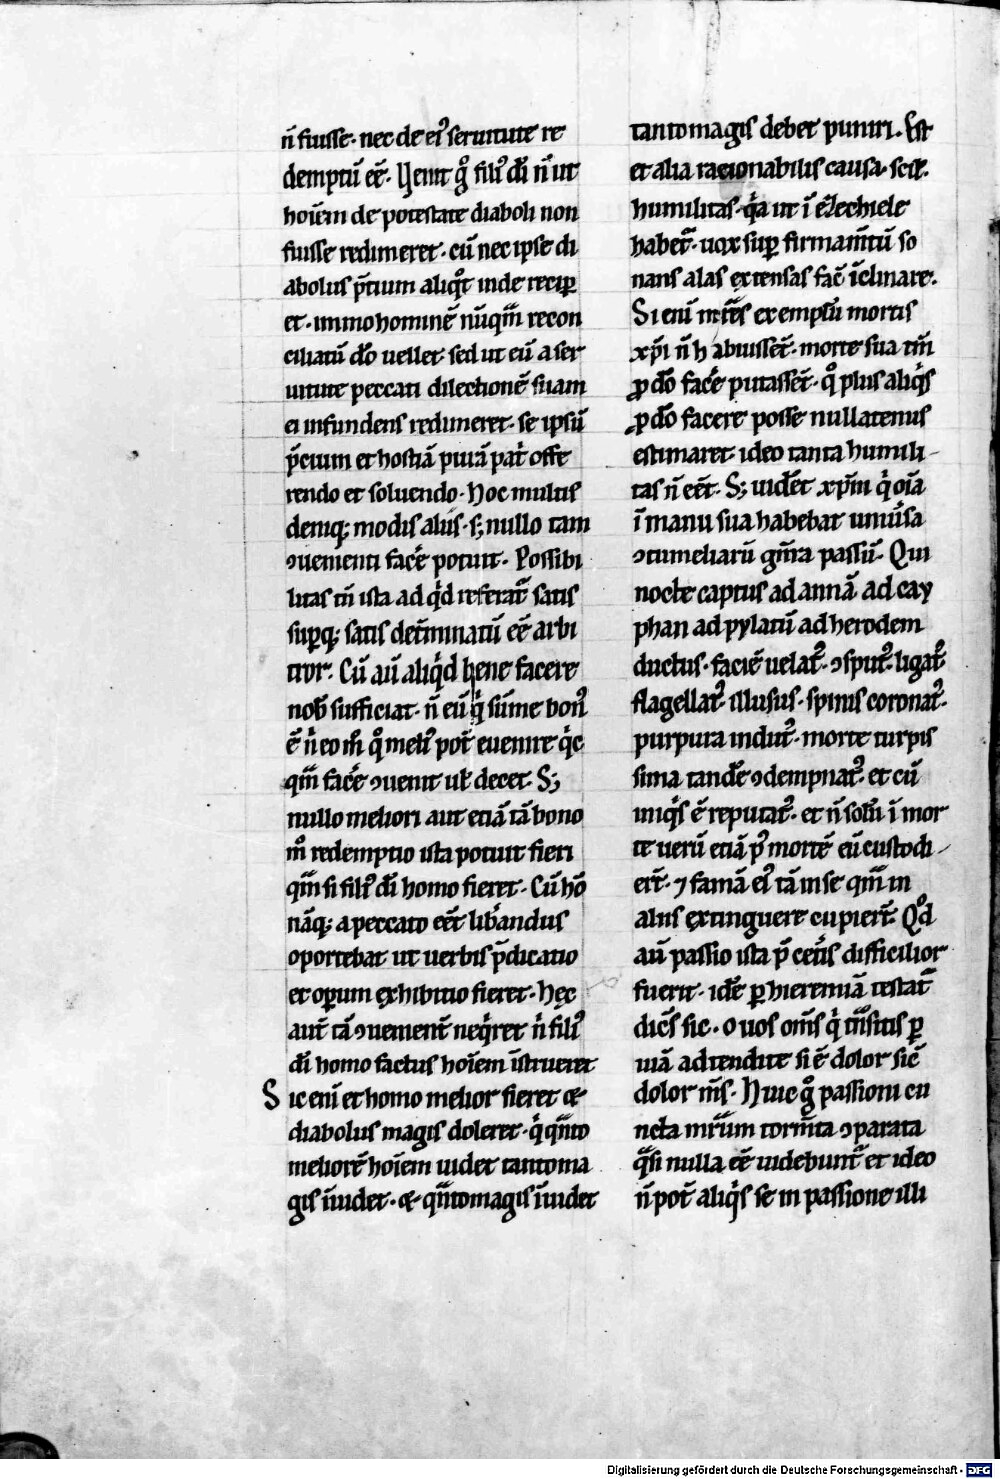 n̄ fuisse · nec de ei᷒ seruitute re
demptū eē̄ · Venit gͦ fili᷒ dī n̄ ut
hoīem de potestate diaboli non
fuisse redimeret · cū nec ipse di
abolus p̄tium aliqͦt inde recip
et · immo hominē nūqm̄ recon
ciliatū dō uellet · sed ut eū a ser
uitute peccati dilectionē suam
ei infundens redimeret · se ipsū
p̄cium et hostiā purā pat̄ offe
rendo et soluendo · Hoc multis
deniq; modis aliis · s; nullo tam
ꝯuenienti fac̄e potuit · Possibi
litas m̄ ista ad qͥd referat᷑ satis
sup̱q; satis det̄minatū eē arbi
tror · Cū aū aliqͥd bene facere
nob̄ sufficiat · n̄ eū qͥ sūme bon᷒
ē n̄ eo m̄ qͦ meli᷒ pot̄ euenire qͥc
qm̄ fac̄e ꝯuenit ul̄ decet · S;
nullo meliori aut etiā tā bono
mͦ redemptio ista potuit fieri
qm̄ si fili᷒ dī homo fieret · Cū hō
nāq; a peccato eēt lib̄andus
oportebat ut uerbis p̄dicatio
et operum ęxhibitio fieret · hęc
aut̄ tā ꝯuenient̄ neqͥret n̄ fili᷒
dī homo factus hoīem īstrueret
Sic eni et homo melior fieret &
diabolus magis doleret · qͥ qn̄to
meliorē hoīem uidet tantoma
gis īuidet · & qn̄tomagis īuidet
tantomagis debet puniri · Est
et alia racionabilis causa · scil̄ ·
humilitas · qͥa ut ī ezechiele
habet᷑ · uox sup̱ firmam̄tū so
nans alas extensas fac̄ īclinare ·
Si eni mr̄es exemplū mortis
xp̄i n̄ h abuissēt · morte sua tm̄
ꝓ dō fac̄e putassēt · qͦ plus aliqͥs
ꝓ dō facere posse nullatenus
estimaret · ideo tanta humili
tas n̄ eēt · S; uidēt xp̄m qͥ oīa
ī manu sua habebat uniūsa
ꝯtumeliarū gn̄a passū · Qui
nocte captus ad annā ad cay
phan ad pylatū ad herodem
ductus · faciē uelat᷒ · ꝯsput᷒ · ligat᷒ ·
flagellat᷒ · illusus · spinis coronat᷒ ·
purpura indut᷒ · morte turpis
sima tandē ꝯdempnat᷒ · et cū
iniqͥs ē reputat᷒ · et n̄ solū ī mor
te uerū etiā p᷒ mortē eū custodi
ert̄ · ⁊ famā ei᷒ tā in se qm̄ in
aliis extinguere cupiert̄ · Qͦd
aū passio ista p̄ cet̄is difficilior
fuerit · idē p̱ hieremiā testat᷑
dicēs sic · O uos om̄s qͥ tn̄sitis p̱
uiā adtendite si ē dolor sic̄
dolor m̄s · Huic gͦ passioni cu
ncta mr̄um torm̄ta ꝯparata
qͣsi nulla eē uidebunt᷑ et ideo
n̄ pot̄ aliqͥs se in passione illi